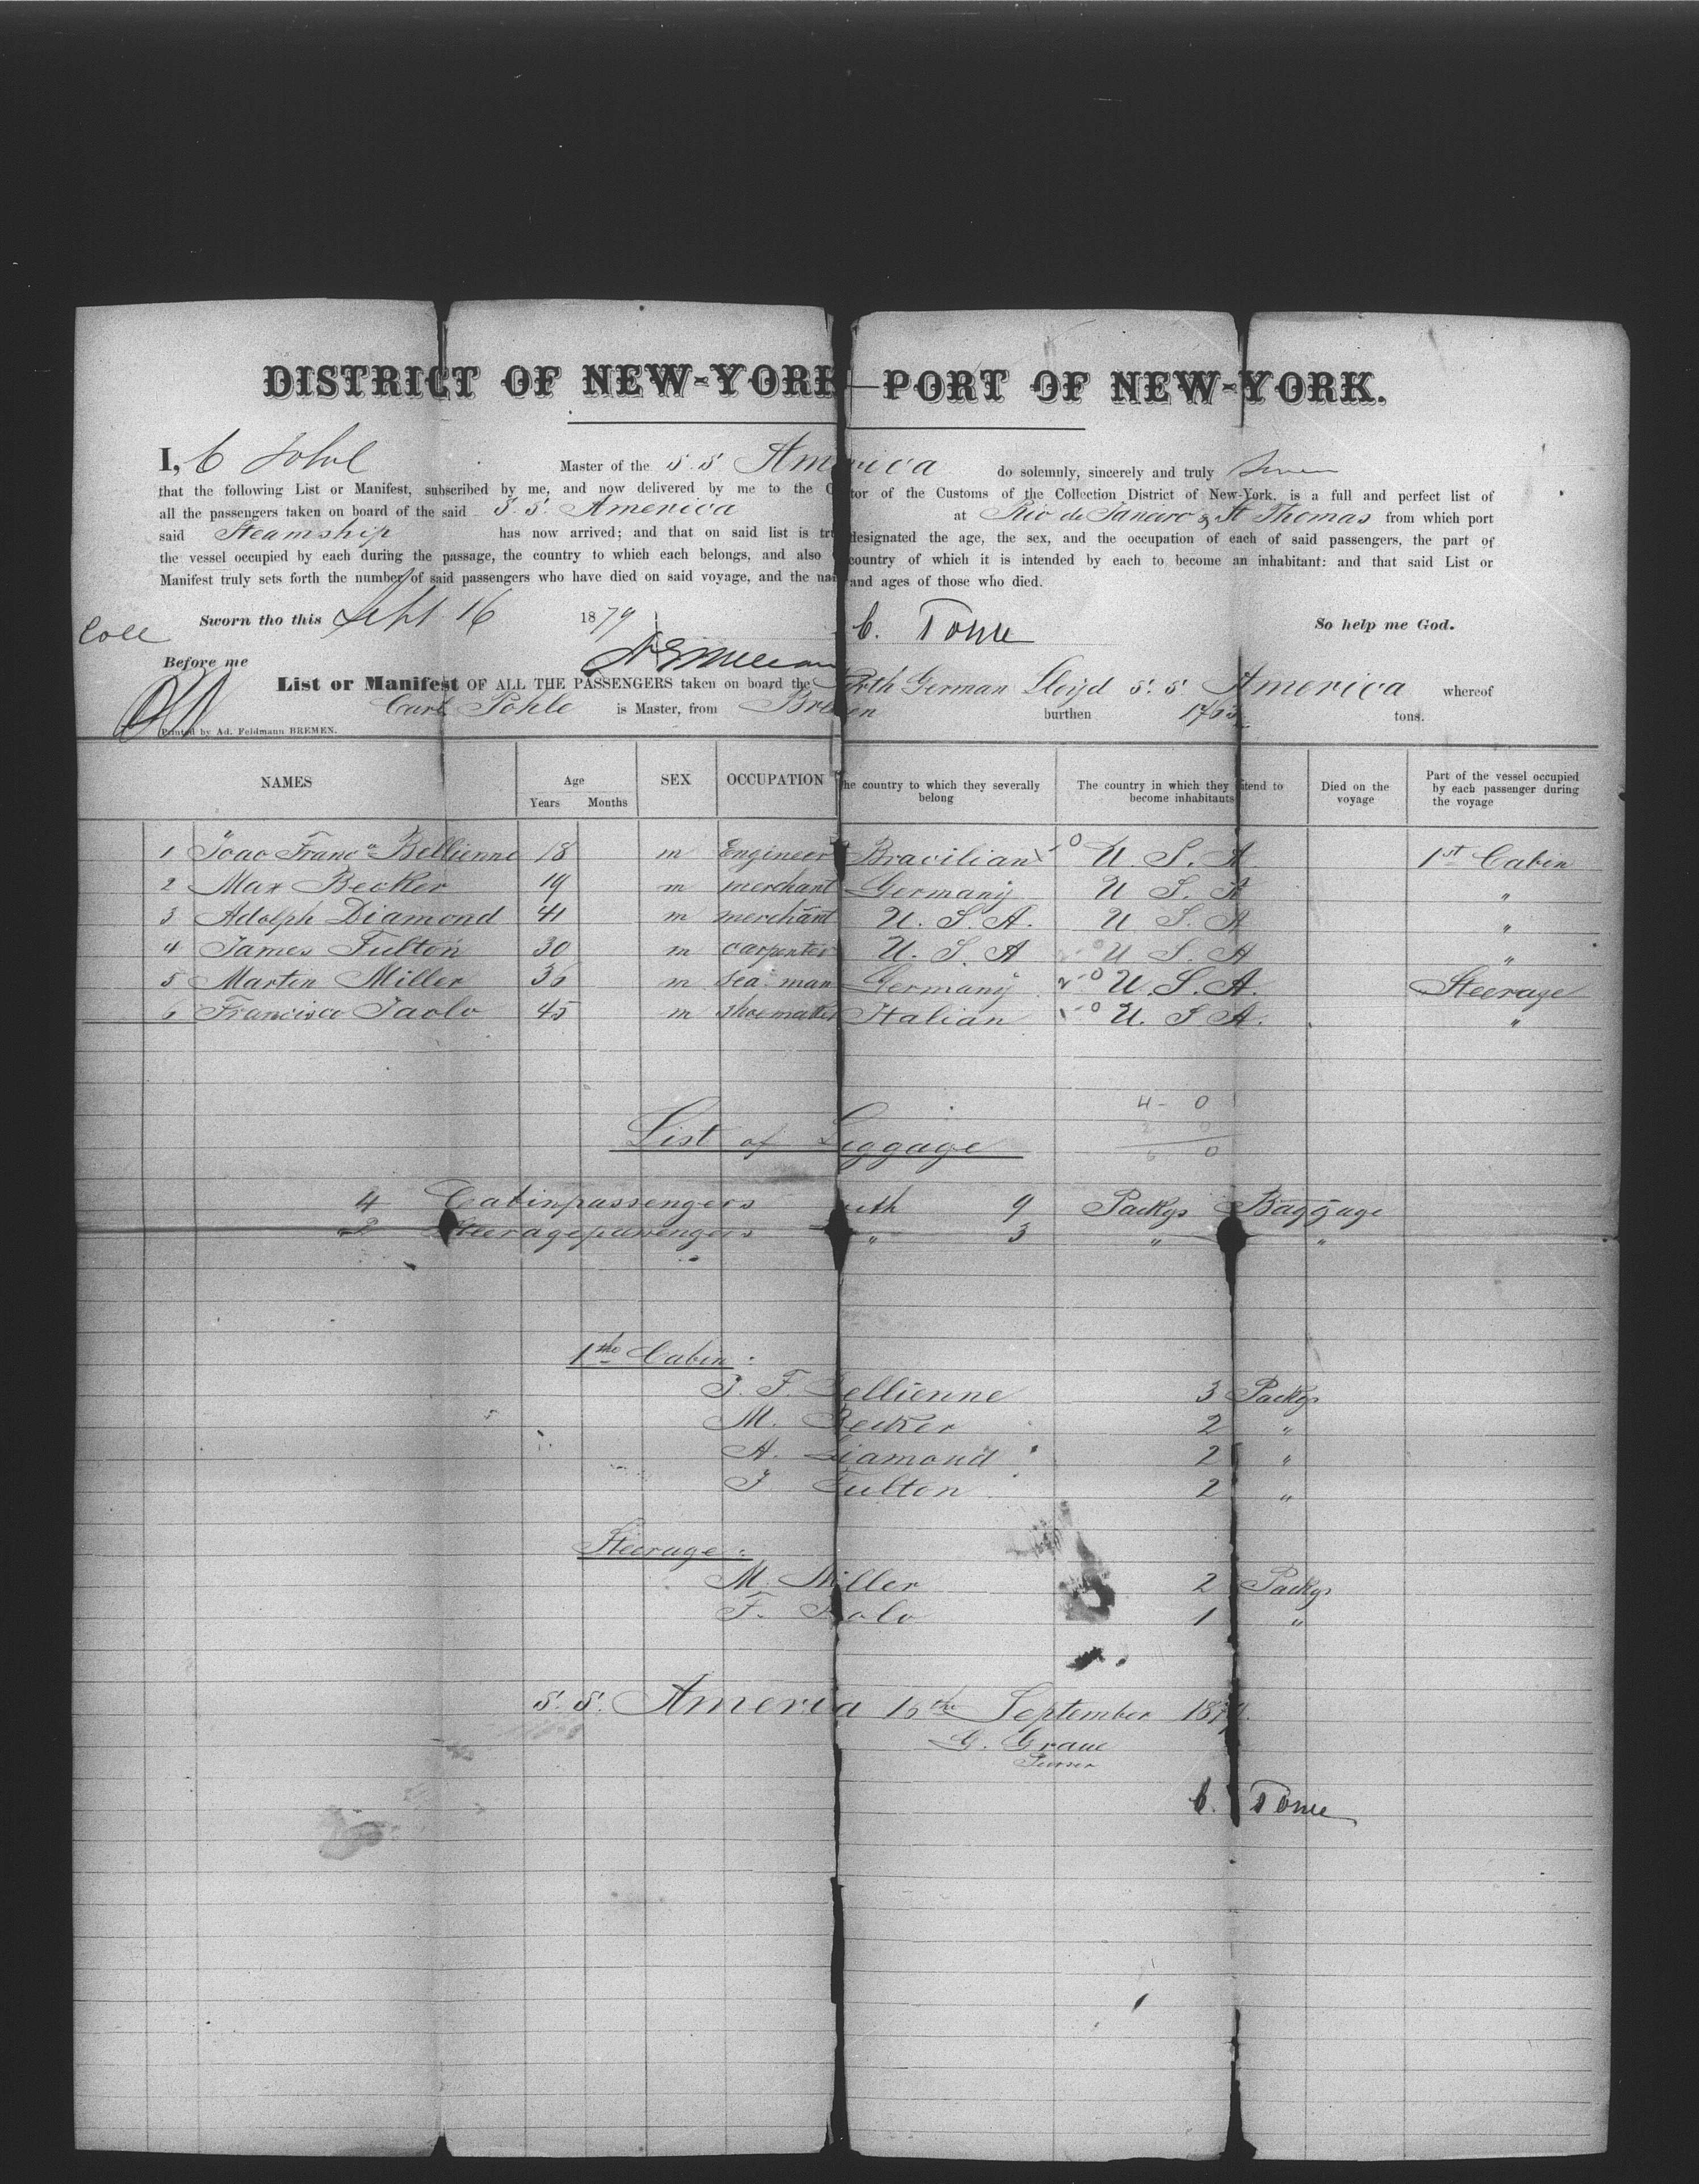 DISTRICT OF NEW-YORK — PORT OF NEW-YORK.
I, C Pohle Master of the S. S America do solemnly, sincerely and truly
that the following List or Manifest, subscribed by me, and now delivered by me to the C tor of the Customs of the Collection District of New-York, is a full and perfect list of
all the passengers taken on board of the said S. S. America at Rio de Janeiro & St Thomas from which port
said Steamship has now arrived; and that on said list is tru designated the age, the sex, and the occupation of each of said passengers, the part of
the vessel occupied by each during the passage, the country to which each belongs, and also country of which it is intended by each to become an inhabitant: and that said List or
Manifest truly sets forth the number of said passengers who have died on said voyage, and the na and ages of those who died.
Sworn tho this Sept 16 1879 C. Pohle So help me God.
Before me
List or Manifest OF ALL THE PASSENGERS taken on board the North German Lloyd S. S America whereof
Carl Pohle is Master, from Bremen burthen tons.
Printed by Ad. Feldmann BREMEN.
NAMES Age Years Months SEX OCCUPATION The country to which they severally belong The country in which they intend to become inhabitants Died on the voyage Part of the vessel occupied by each passenger during the voyage
1 Joao Franco Bellienne 18 m Engineer Bracilian U. S. A 1st Cabin
2 Max Becker 19 m merchant Germany U S. A "
3 Adolph Diamond 41 m merchant U. S. A. U S. A "
4 James Fulton 30 m carpenter U. S. A U S. A "
5 Martin Miller m Sea man Germany 0 U. S. A. Steerage
6 Francisco Paolo 45 m shoemaker Italian 0 U. S A. "
4 - 0
List of Leggage
0
4 Cabinpassengers with 9 Packgs Baggage
2 Steeragepassengers " 3 " "
1the Cabin:
J. F. Bellienne 3 Packgs
M. Becker 2 "
A. Diamond 2 "
J Fulton 2 "
Steerage:
M. Miller 2 Packgs
F. Paolo 1 "
S. S. America September 1879.
G. Graue
Purser
C. Pohle